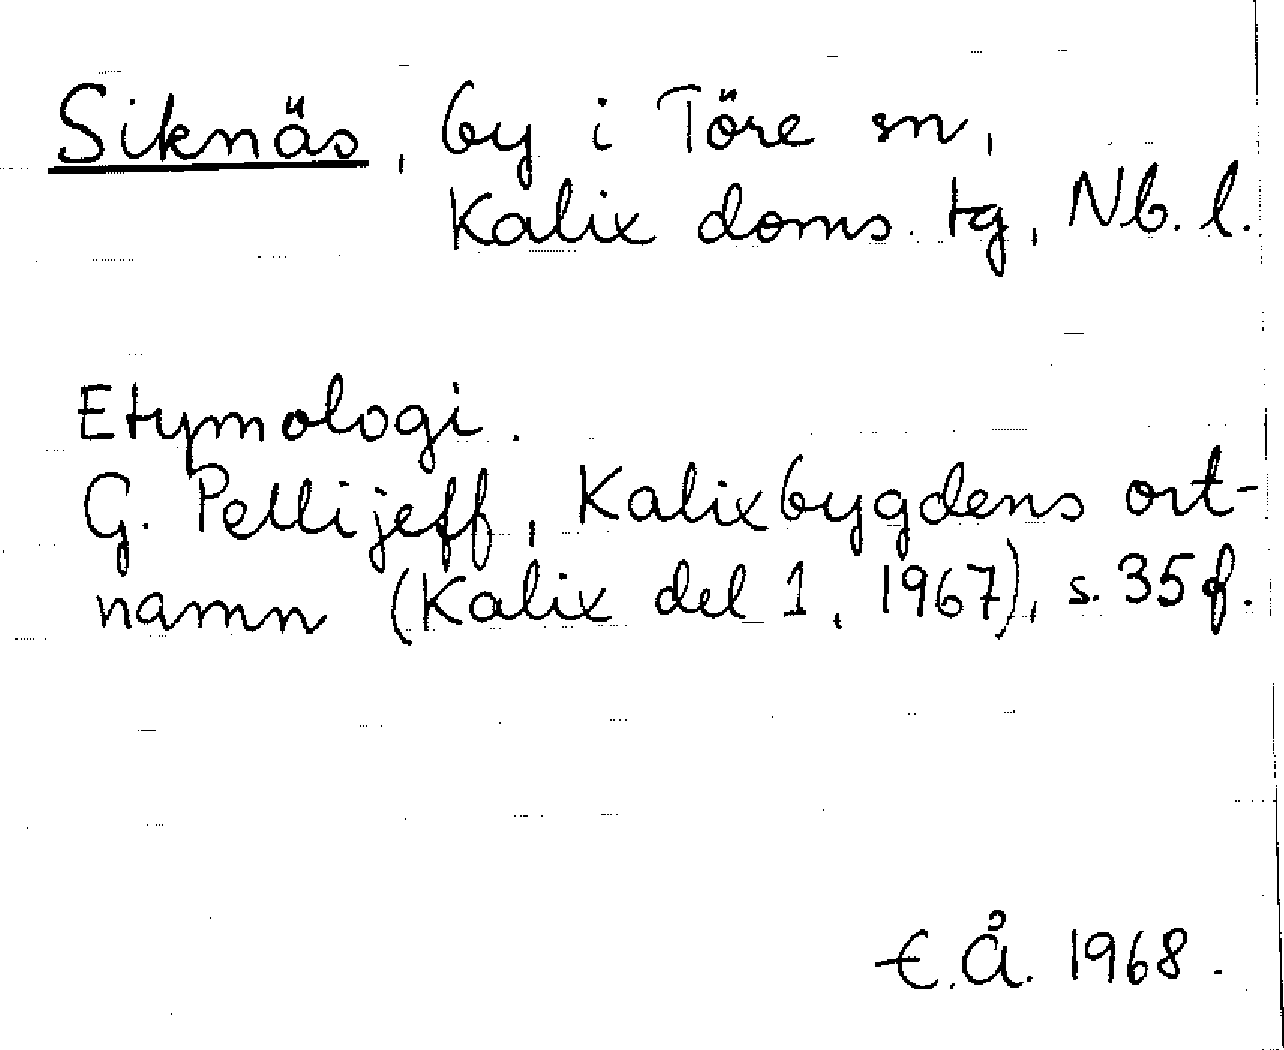 Siknäs, by i Töre sn,
Kalix doms. tg, Nb. l.
Etymologi.
G. Pellijeff, Kalixbygdens ort-
namn (Kalix del 1, 1967), s. 35 f.
E.Å. 1968.